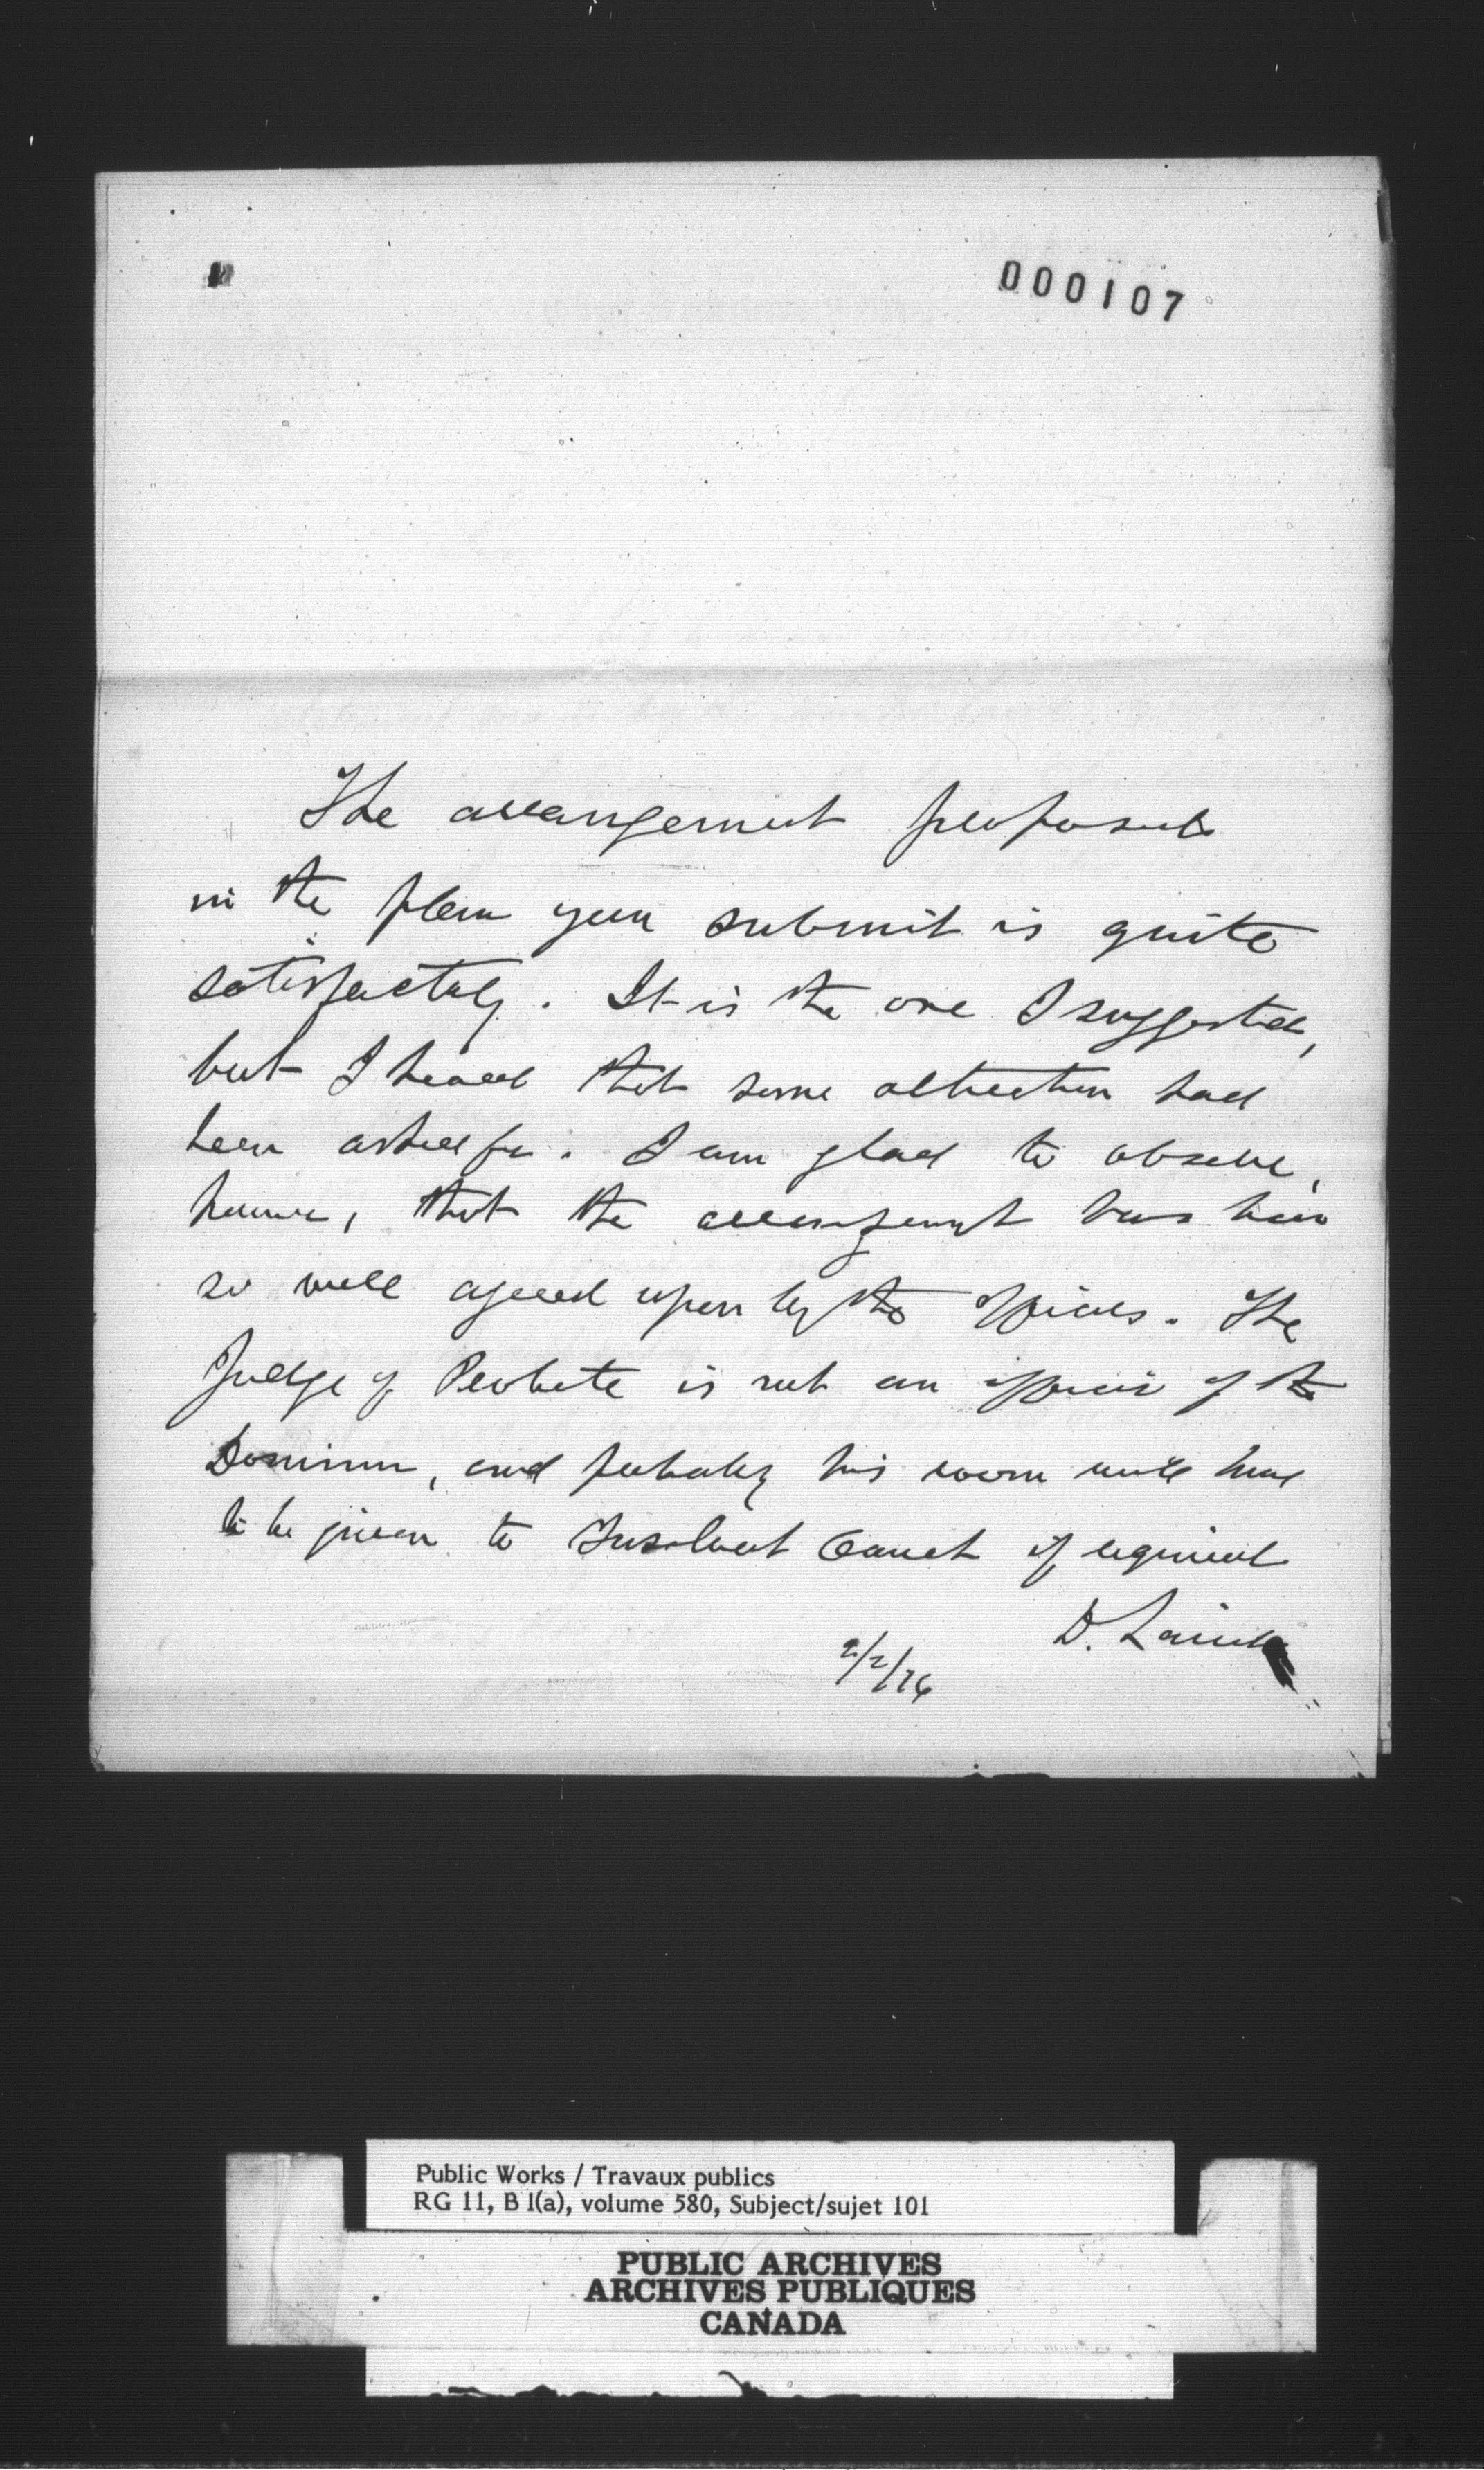 000107
The arrangement proposed
in the plan you submit is quite
satisfactory. It is the one I suggested,
but I heard that some alteration had
been asked for. I am glad to observe,
however, that the arrangement has been
so well agreed upon by the officers. The
Judge of Probate is not an officer of the
Dominion, and probably his room will have
to be given to Insolvent Court if required
D. Laird
2/2/76
Public Works / Travaux publics
RG 11, B 1(a), volume 580, Subject/sujet 101
PUBLIC ARCHIVES
ARCHIVES PUBLIQUES
CANADA